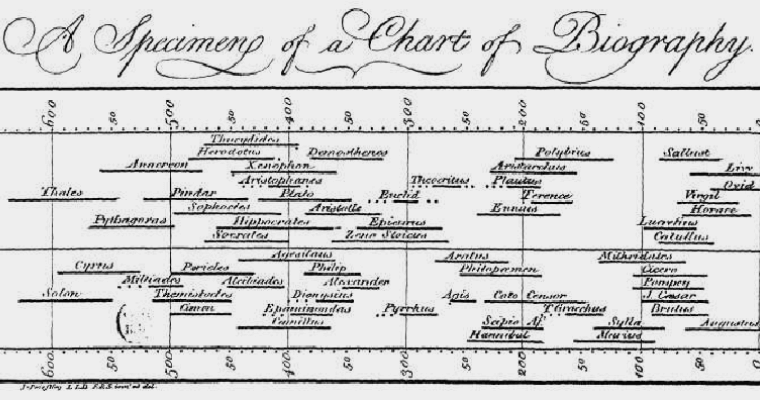 A Specimen of a Chart of Biography.
600 50 500 50 400 50 300 50 200 50 100 50 0
Thucydides
Herodotus Demosthenes Polybius Sallust
Anacreon Xenophon Aristarchus Livy
Aristophanes Theocritus Plautus Ovid
Thales Pindar Plato Euclid Terence Virgil
Sophocles Aristotle Ennius Horace
Pythagoras Hippocrates Epicurus Lucretius
Socrates Zeno Stoicus Catullus
Agesilaus Aratus Mithridates
Cyrus Pericles Philip Philopoemen Cicero
Miltiades Alcibiades Alexander Pompey
Solon Themistocles Dionysius Agis Cato Censor J. Cæsar
Cimon Epaminondas Pyrrhus T. Gracchus Brutus
Camillus Scipio Af. Sylla Augustus
Hannibal Marius
600 50 500 50 400 50 300 50 200 50 100 50 0